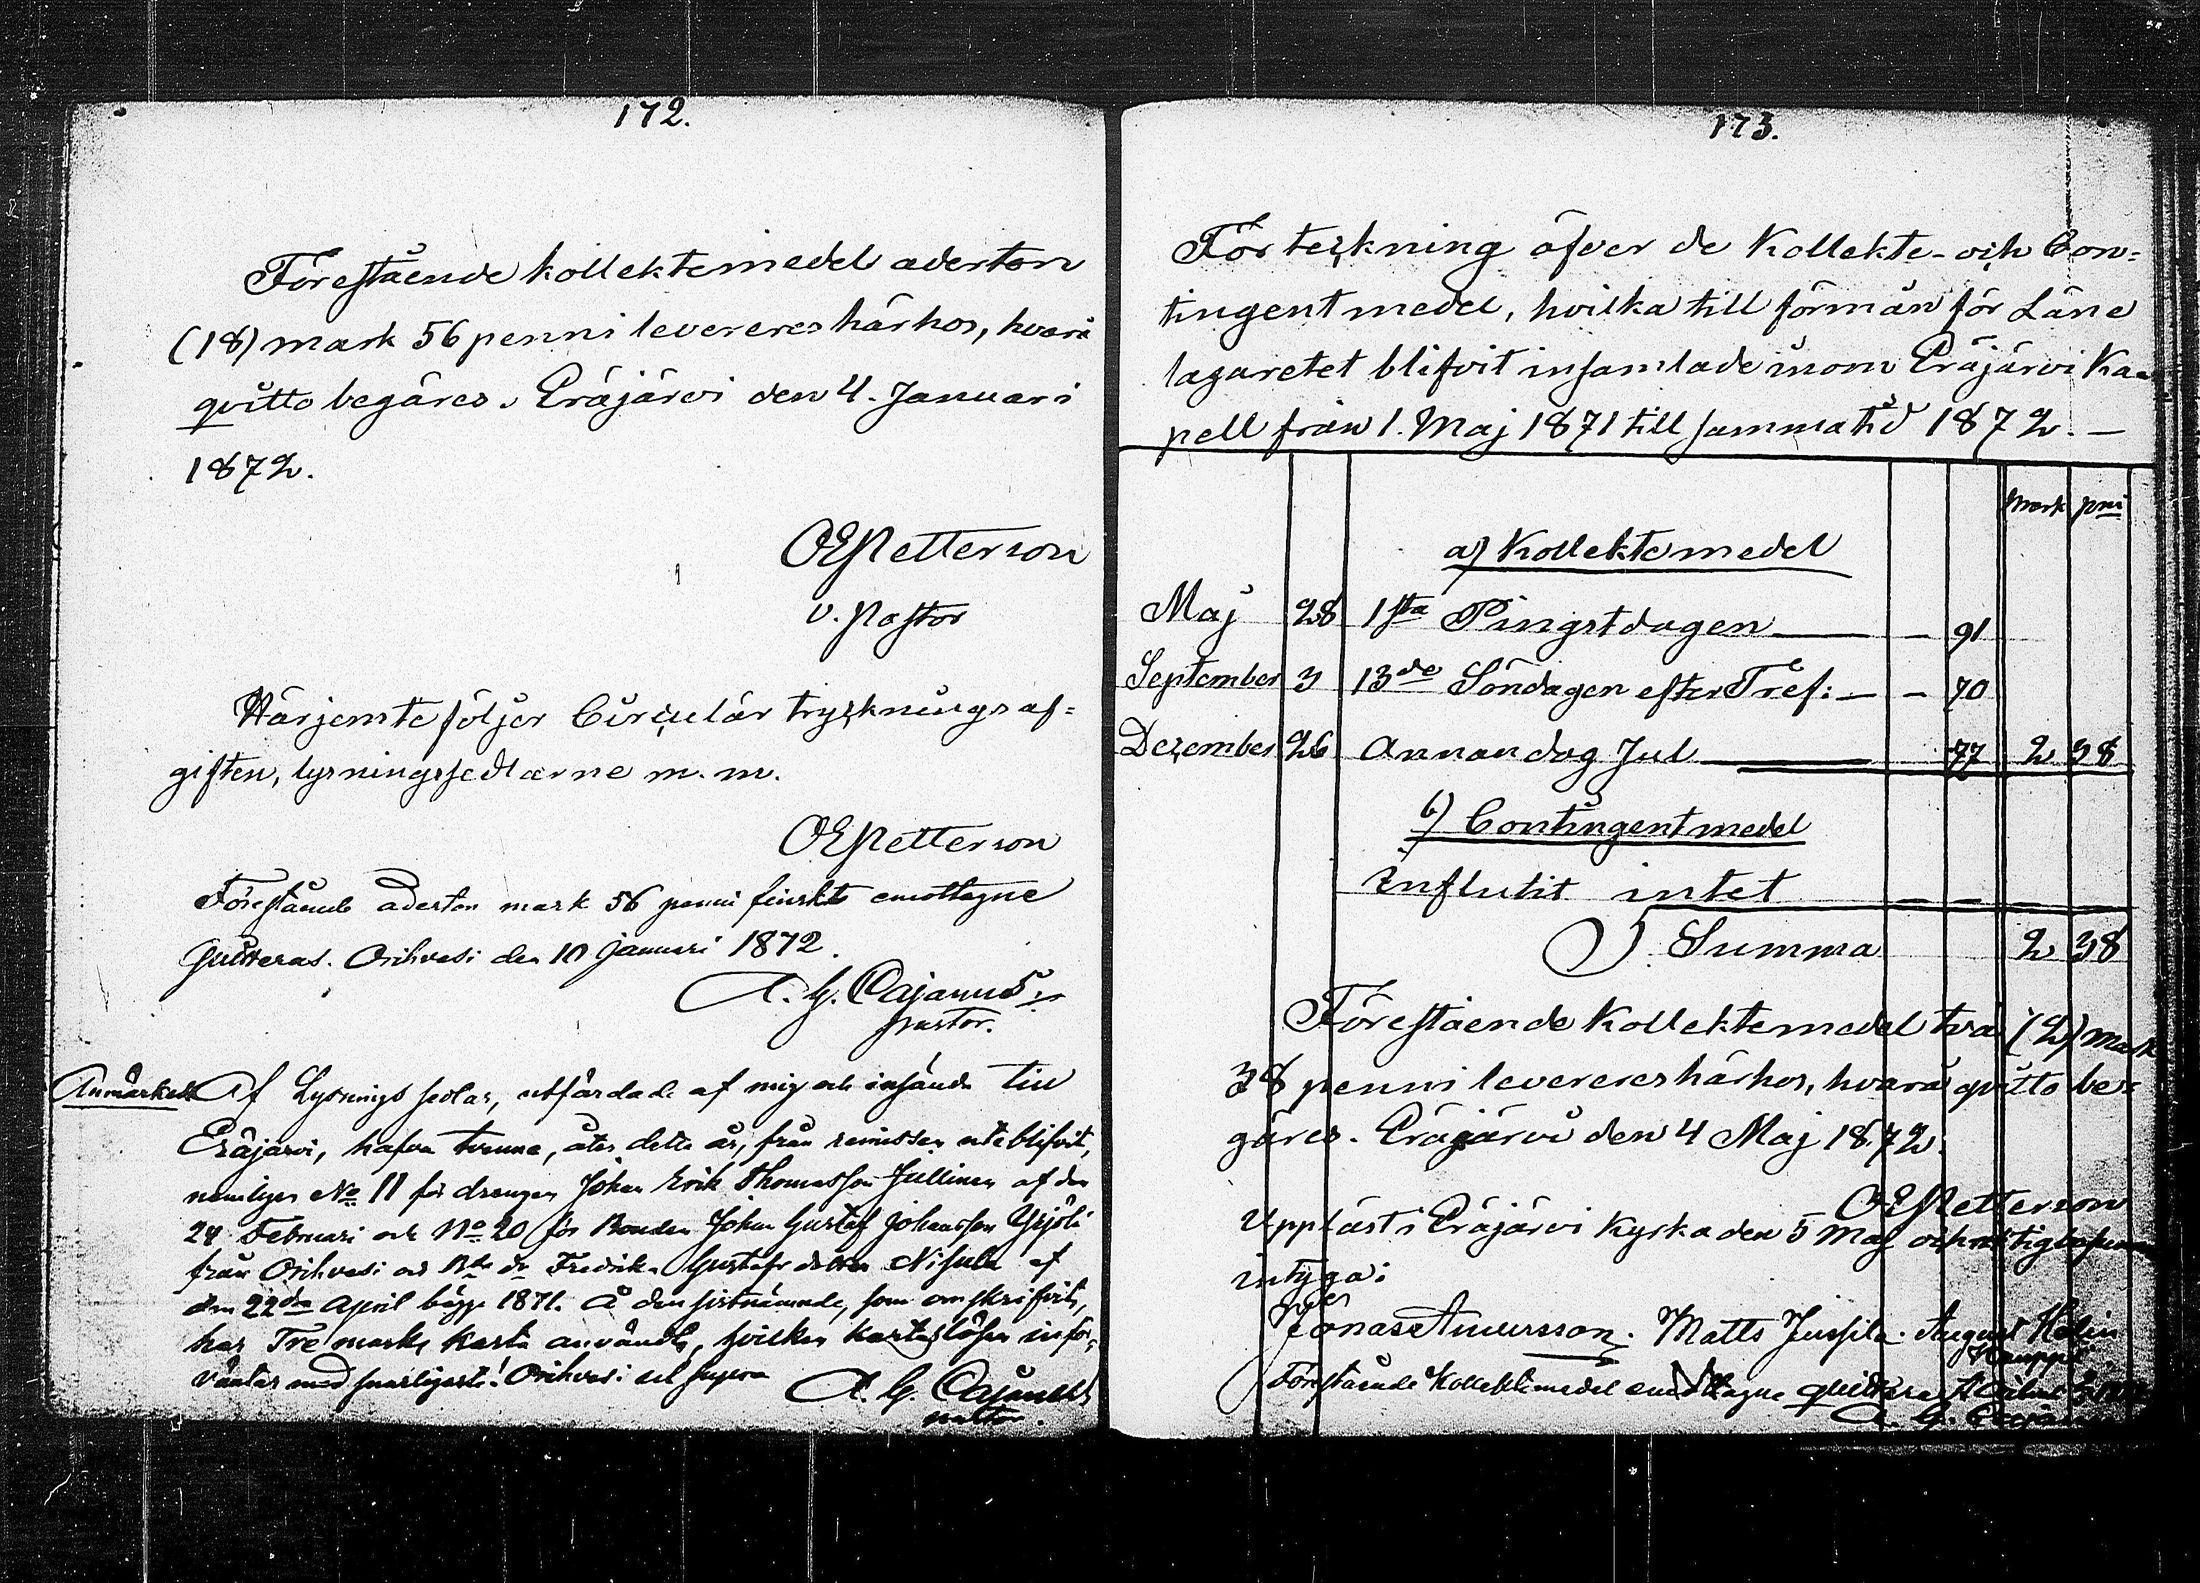 172.
Förestående kollektemedel aderton
(18) mark 56 penni levereres härhos, hvarå
qvitto begäres. Eräjärvi den 4. Januari
1872.
OEPetterson
v. Pastor
Härjemte följer Circulär tryckningsaf=
giften, lysningssedlarne m. m.
OEPetterson
Förestående aderton mark 56 penni finskt emottagne
Quitteras. Orihvesi den 10 Januari 1872.
A. G. Cajanus
pastor.
Anmärkes Af Lysnings sedlar, utfärdade af mig och insände till
Eräjärvi, hafva tvenne, åter detta år, från remissen uteblifvit,
nemligen No 11 för drengen Johan Erik Thomasson Jullinen af den
24 Februari och No 20 för Bonden Johan Gustaf Johansson Yrjölä
från Orihvesi och Fredrika Gustafsdotter Nisula af
den 22dra April bägge 1871. Å den sistnämnde, som omskrifvits,
har Tre marks karta användts, hvilken kartas lösen inför=
väntas med snarligaste! Orihvesi ut supra
A. G. Cajanus
pastor.
173.
Förteckning öfver de Kollekte- och Con=
tingentmedel, hvilka till förmån för Läne
lazaretet blifvit insamlade inom Eräjärvi Ka=
pell från 1. Maj 1871 till samma tid 1872. —
Mark pni
a) Kollektemedel
Maj 28 1sta Pingstdagen — — 91
September 3 13de Söndagen efter Tref: — — 70
Dezember 26 Annandag Jul — 77 2 38
b) Contingentmedel
Influtit intet — — —
Summa 2 38
Förestående Kollektemedel två (2) mark
38 penni levereres härhos, hvarå qvitto be=
gäres. Eräjärvi den 4 Maj 1872.
OEPetterson
Uppläst i Eräjärvi Kyrka den 5 Maj och
intyga:
Jonas Anursson. Matts Jussila. August Helin
Kauppi
Förestående Kollektmedel emottagne quitteras
A. G. Cajanus